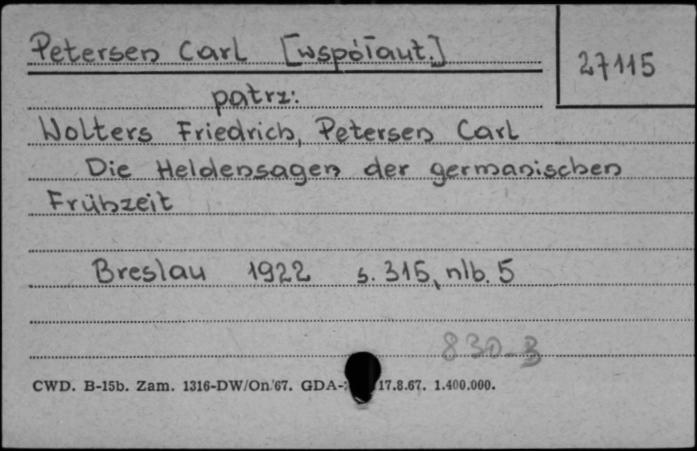 Petersen Carl [współaut.]
27115
patrz:
Wolters Friedrich, Petersen Carl
Die Heldensagen der germanischen
Frühzeit
Breslau 1922 s. 315, nlb. 5
830-3
CWD. B-15b. Zam. 1316-DW/On/67. GDA- 17.8.67. 1.400.000.